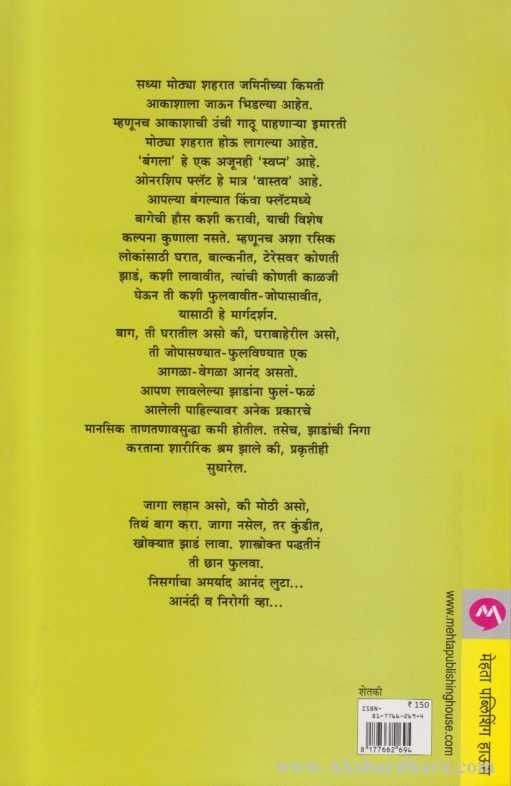 सध्या मोठ्या शहरात जमिनीच्या किमती
आकाशाला जाऊन भिडल्या आहेत.
म्हणूनच आकाशाची उंची गाठू पाहणाऱ्या इमारती
मोठ्या शहरात होऊ लागल्या आहेत.
'बंगला' हे एक अजूनही 'स्वप्न' आहे.
ओनरशिप फ्लॅट हे मात्र 'वास्तव' आहे.
आपल्या बंगल्यात किंवा फ्लॅटमध्ये
बागेची हौस कशी करावी, याची विशेष
कल्पना कुणाला नसते. म्हणूनच अशा रसिक
लोकांसाठी घरात, बाल्कनीत, टेरेसवर कोणती
झाडं, कशी लावावीत, त्यांची कोणती काळजी
घेऊन ती कशी फुलवावीत-जोपासावीत,
यासाठी हे मार्गदर्शन.
बाग, ती घरातील असो की, घराबाहेरील असो,
ती जोपासण्यात-फुलविण्यात एक
आगळा-वेगळा आनंद असतो.
आपण लावलेल्या झाडांना फुलं-फळं
आलेली पाहिल्यावर अनेक प्रकारचे
मानसिक ताणतणावसुद्धा कमी होतील. तसेच, झाडांची निगा
करताना शारीरिक श्रम झाले की, प्रकृतीही
सुधारेल.
जागा लहान असो, की मोठी असो,
तिथं बाग करा. जागा नसेल, तर कुंडीत,
खोक्यात झाडं लावा. शास्त्रोक्त पद्धतीनं
ती छान फुलवा.
निसर्गाचा अमर्याद आनंद लुटा...
आनंदी व निरोगी व्हा...
www.mehtapublishinghouse.com
मेहता पब्लिशिंग हाऊस
शेतकी
₹ 150
ISBN-
81-7766-269-4
8 177662 694